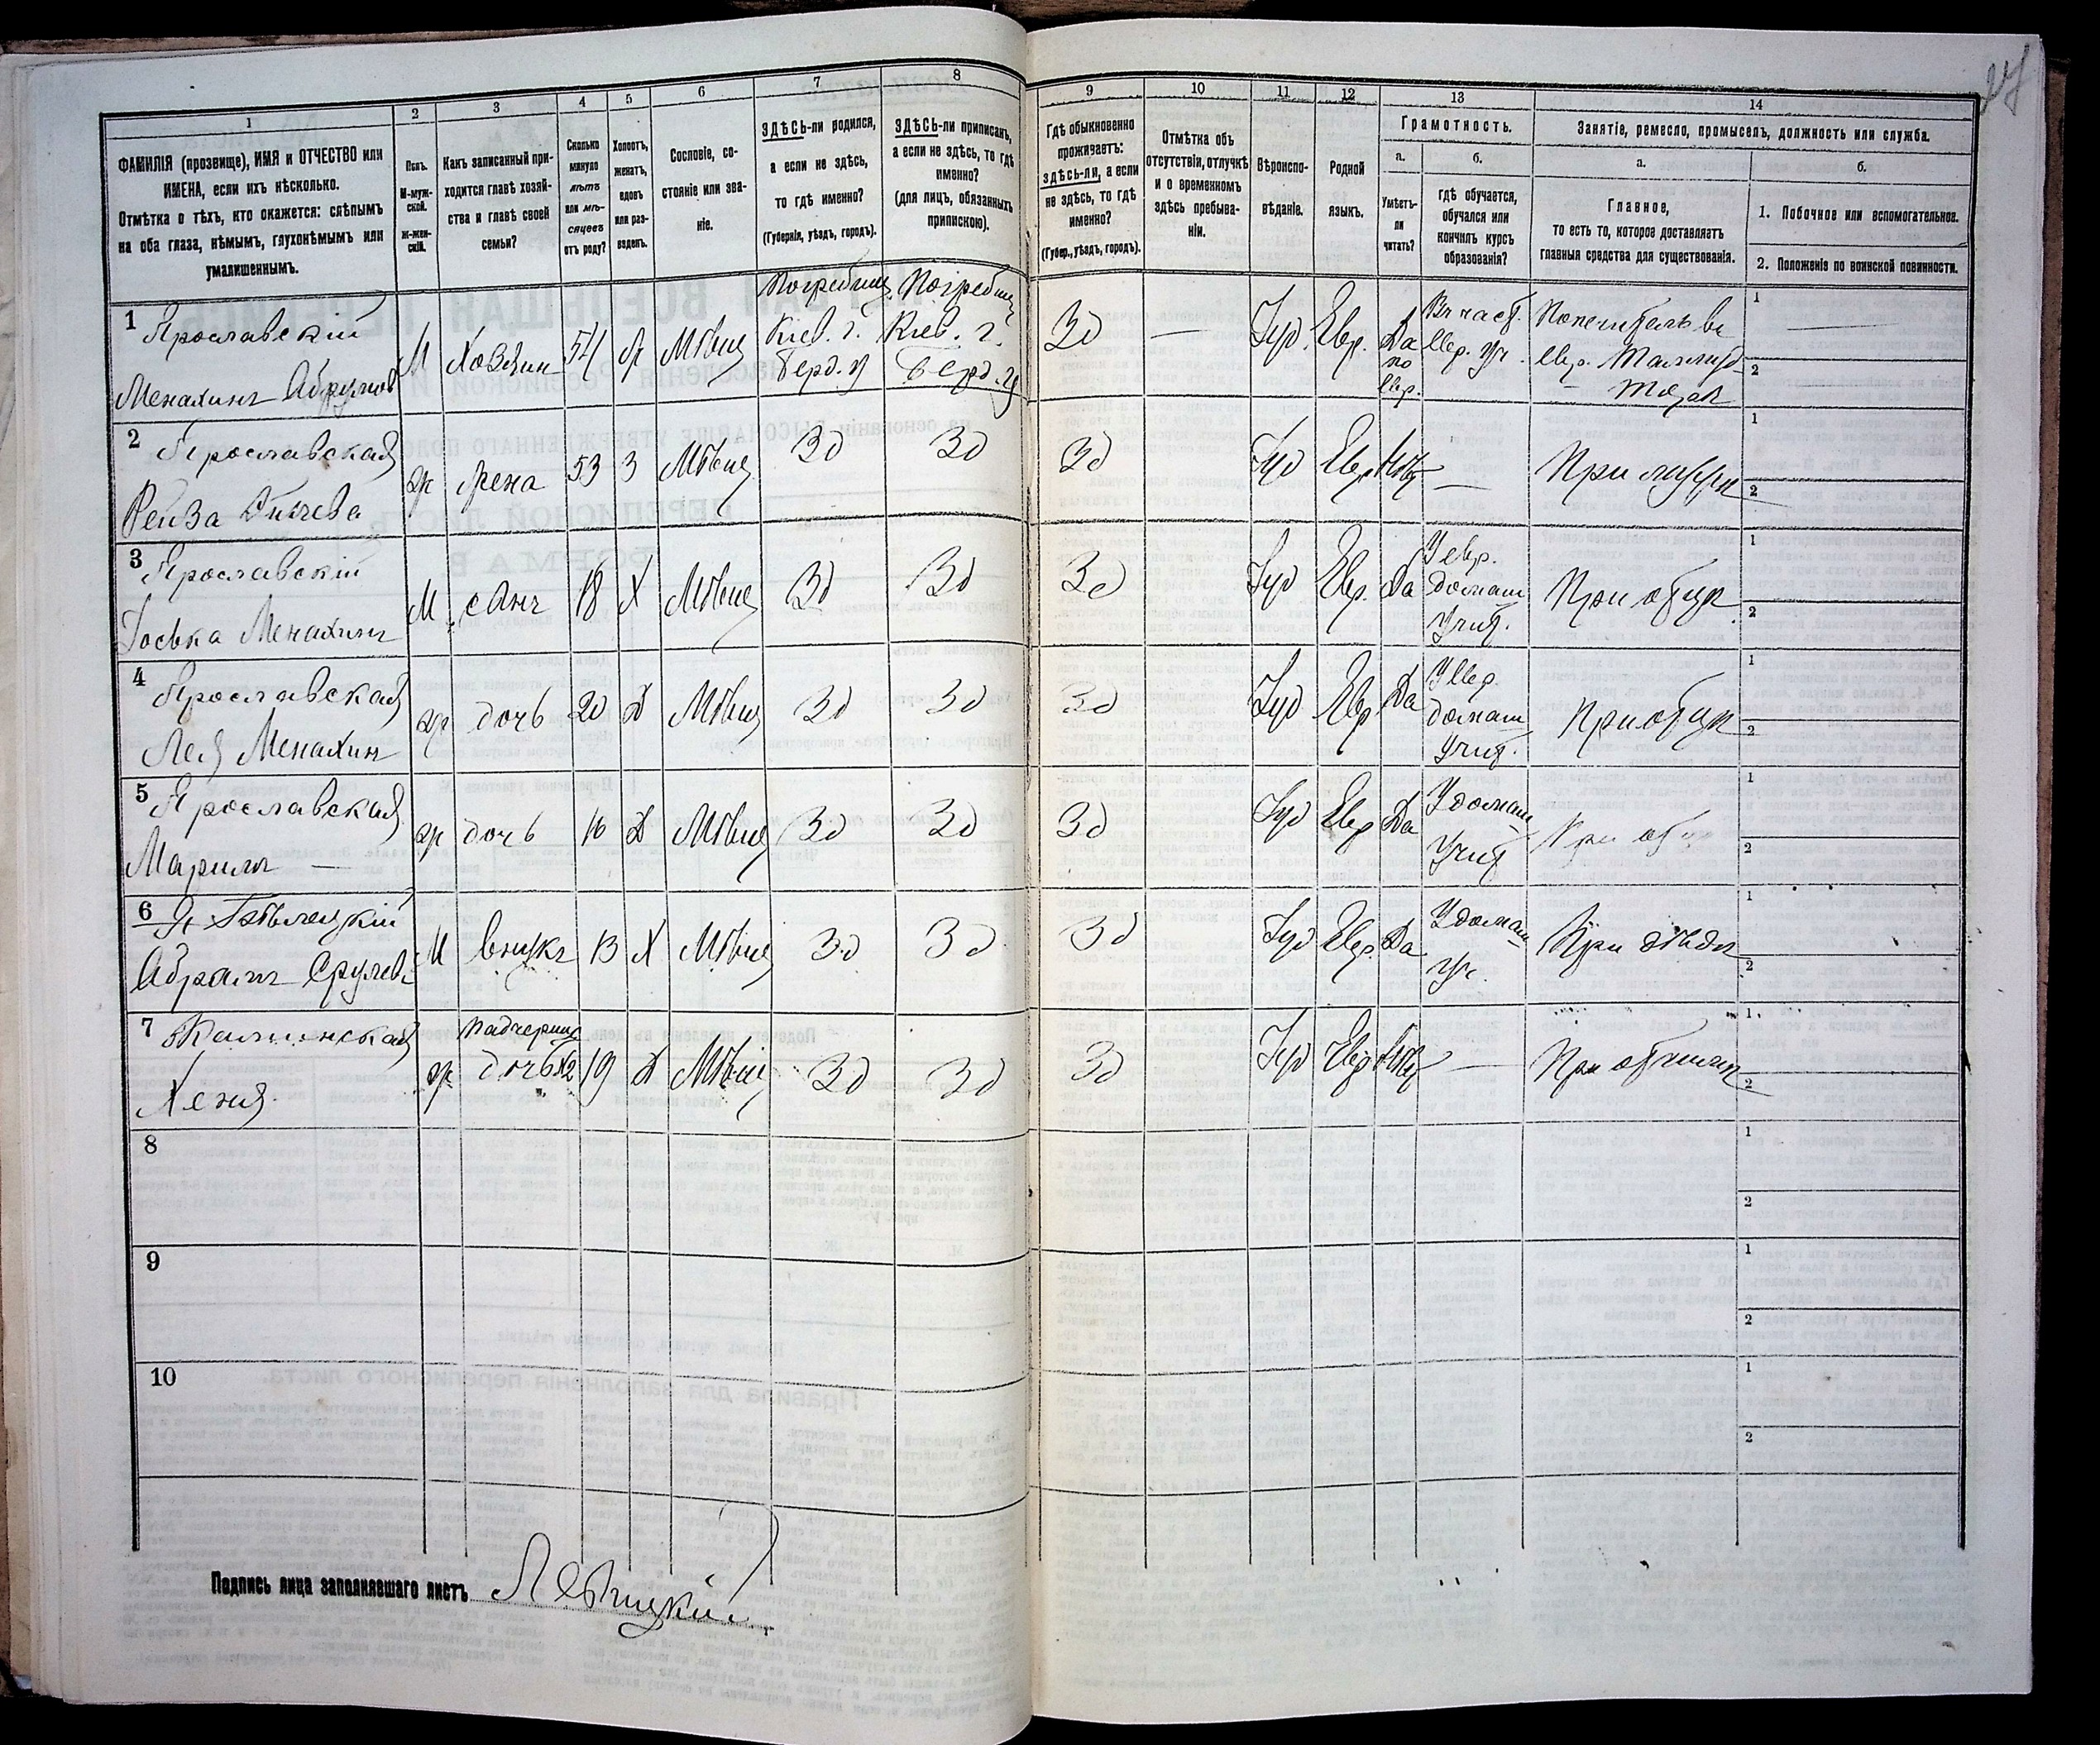 27
1
2
3
4
5
6
7
8
9
10
11
12
13
14
ФАМИЛІЯ (прозвище), ИМЯ и ОТЧЕСТВО или
ИМЕНА, если ихъ нѣсколько.
Отмѣтка о тѣхъ, кто окажется: слѣпымъ
на оба глаза, нѣмымъ, глухонѣмымъ или
умалишеннымъ.
Полъ.
М-муж-
ской.
Ж-жен-
скій.
Какъ записанный при-
ходится главѣ хозяй-
ства и главѣ своей
семьи?
Сколько
минуло
лѣтъ
или мѣ-
сяцевъ
отъ роду?
Холостъ,
женатъ,
вдовъ
или раз-
веденъ.
Сословіе, со-
стояніе или зва-
ніе.
ЗДѢСЬ-ли родился,
а если не здѣсь,
то гдѣ именно?
(Губернія, уѣздъ, городъ).
ЗДѢСЬ-ли приписанъ,
а если не здѣсь, то гдѣ
именно?
(для лицъ, обязанныхъ
припискою).
Гдѣ обыкновенно
проживаетъ:
здѣсь-ли, а если
не здѣсь, то гдѣ
именно?
(Губер., уѣздъ, городъ).
Отмѣтка объ
отсутствіи, отлучкѣ
и о временномъ
здѣсь пребыва-
ніи.
Вѣроиспо-
вѣданіе.
Родной
языкъ.
Грамотность.
а.
Умѣетъ-
ли
читать?
б.
Гдѣ обучается,
обучался или
кончилъ курсъ
образованія?
Занятіе, ремесло, промыселъ, должность или служба.
а.
Главное,
то есть то, которое доставляетъ
главныя средства для существованія.
б.
1. Побочное или вспомогательное.
2. Положеніе по воинской повинности.
1 Ярославскій
Менахимъ Абрумов
М Хозяинъ 54 Ж Мѣщ
Погребищ.
Кіев. г.
Берд. у
Погребищ
Кіев. г.
Берд. у
Зд — Іуд. Евр. Да
по
Евр.
Въ част.
Евр. уч.
Попечитель въ
Евр. Талмуд
Торах
1
2
2 Ярославская
Рейза
ж жена 53 З Мѣщ Зд Зд Зд Іуд Евр Нѣт — При мужѣ
1
2
3 Ярославскій
Іоська Менахим
М сынъ 18 Х Мѣщ Зд Зд Зд Іуд Евр. Да
У евр.
домаш
Учит.
При отцѣ
1
2
4 Ярославская
Лея Менахим
ж дочь 20 Д Мѣщ Зд Зд Зд Іуд Евр Да
У Евр.
домаш
Учит.
При отцѣ
1
2
5 Ярославская
Маримъ —
ж дочь 16 Д Мѣщ Зд Зд Зд Іуд Евр Да
У домаш
Учит
При от
1
2
6
Абрамъ Срулев
М внукъ 13 Х Мѣщ Зд Зд Зд Іуд Евр. Да
У домаш
Уч.
При дѣдѣ
1
2
7
Хеня
ж
Падчериц
дочь х2 19 Д Мѣщ Зд Зд Зд Іуд Евр Нѣт —
1
2
8
1
2
9
1
2
10
1
2
Подпись лица заполнявшаго листъ